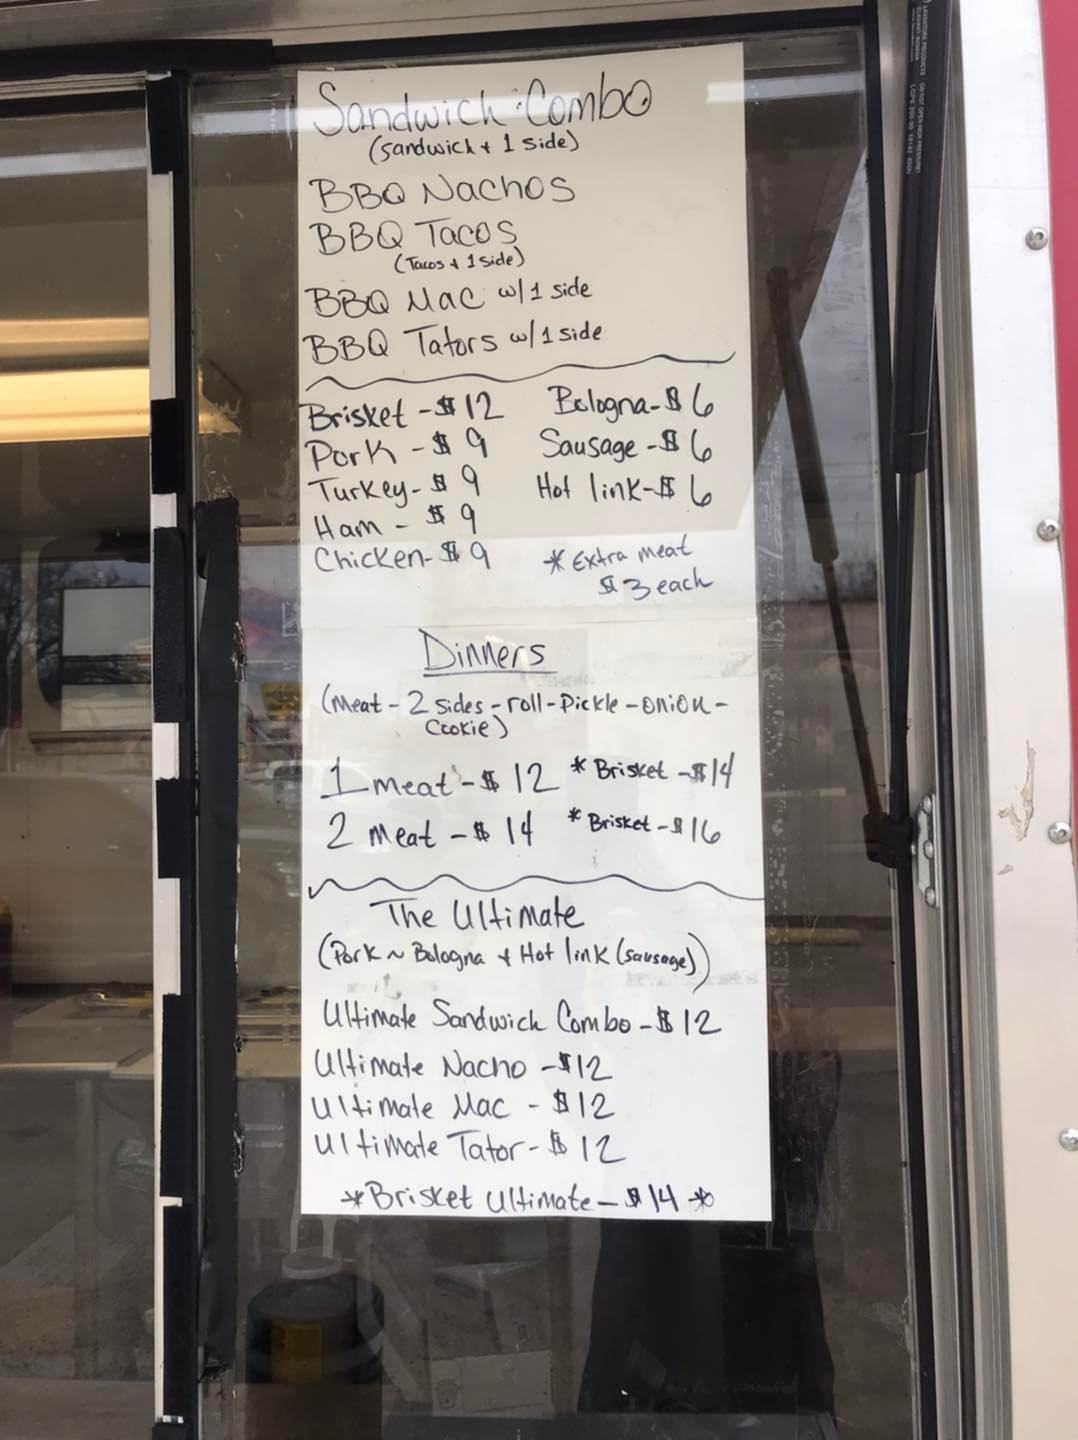 Sandwich Combo
(sandwich + 1 side)
BBQ Nachos
BBQ Tacos
(Tacos + 1 side)
BBQ Mac w/1 side
BBQ Tators w/1 side
Brisket - $12 Bologna - $6
Pork - $9 Sausage - $6
Turkey - $9 Hot link - $6
Ham - $9
Chicken - $9 * Extra meat
$3 each
Dinners
(Meat - 2 sides - roll - Pickle - onion -
Cookie)
1 meat - $12 * Brisket - $14
2 meat - $14 * Brisket - $16
The Ultimate
(Pork ~ Bologna + Hot link (sausage))
Ultimate Sandwich Combo - $12
Ultimate Nacho - $12
Ultimate Mac - $12
Ultimate Tator - $12
* Brisket Ultimate - $14 *